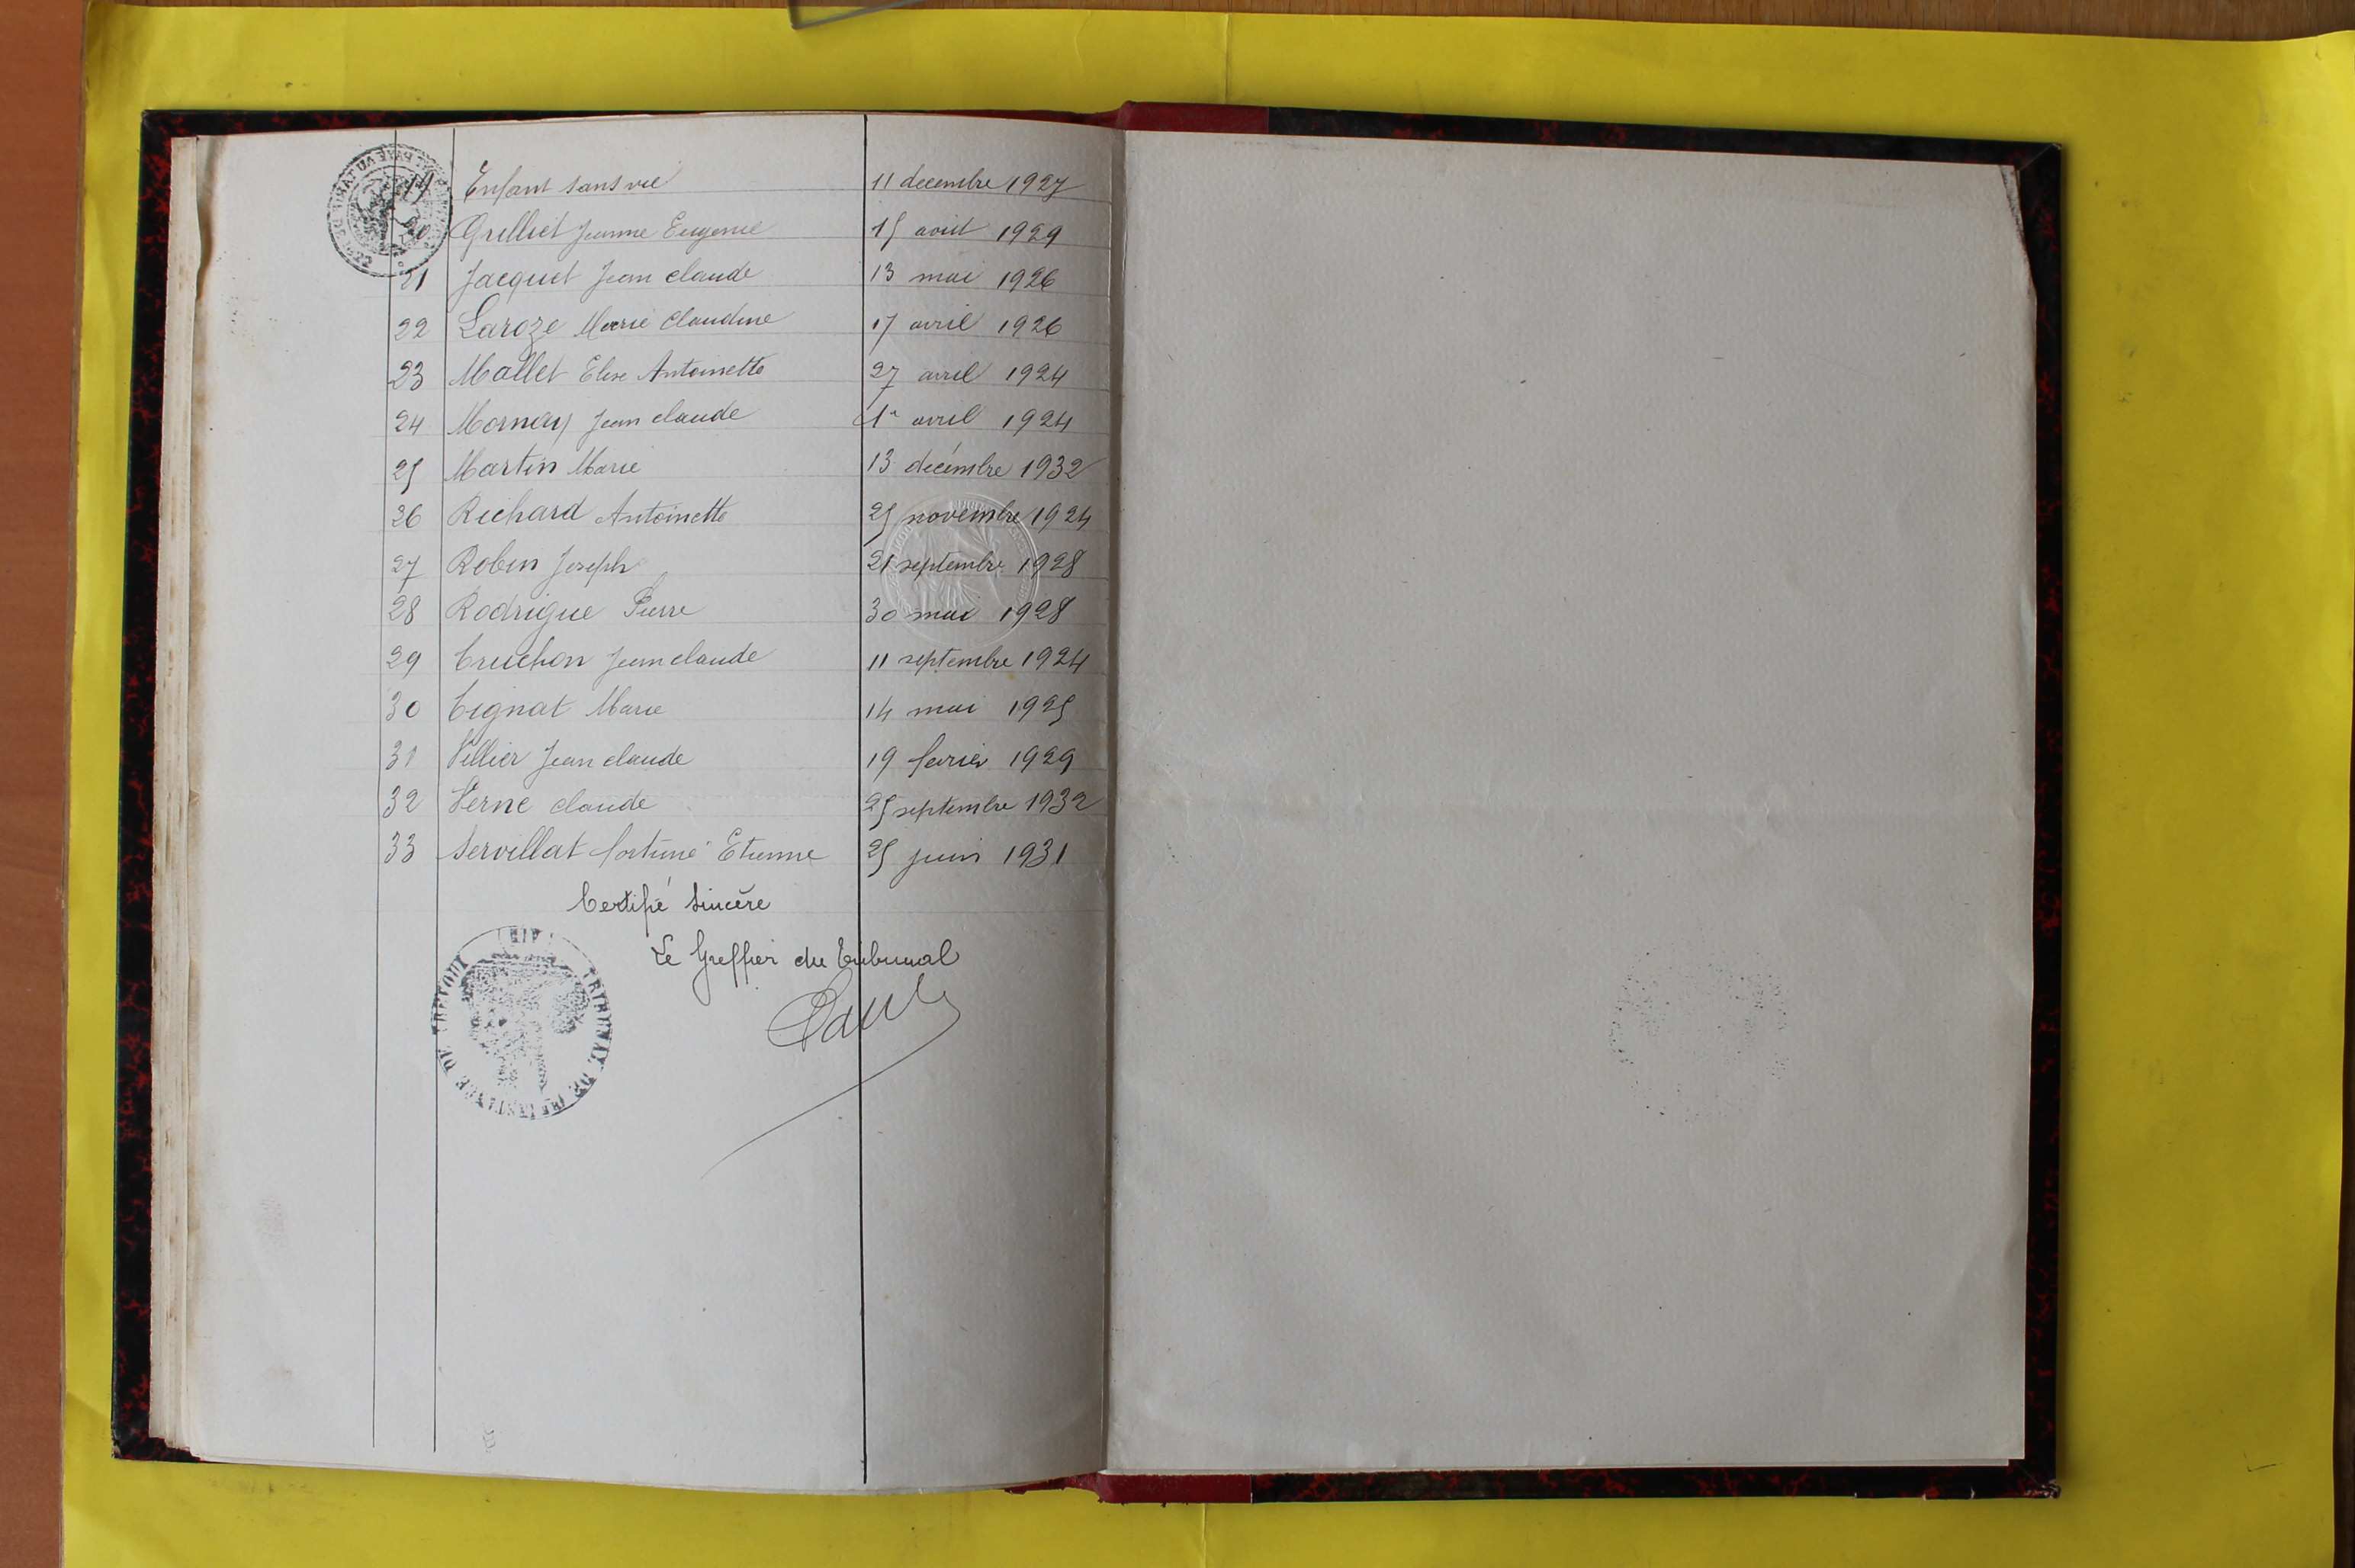 19 Enfant sans vie 11 decembre 1927
20 Grilliet Jeanne Eugenie 15 août 1929
21 Jacquet Jean claude 13 mai 1926
22 Laroze Marie Claudine 17 avril 1926
23 Mallet Elise Antoinette 27 avril 1924
24 Mornay Jean claude 1er avril 1924
25 Martin Marie 13 decémbre 1932
26 Richard Antoinette 25 novembre 1924
27 Robin Joseph 21 septembre 1928
28 Rodrigue Pierre 30 mai 1928
29 Truchon Jean claude 11 septembre 1924
30 Tignat Marie 14 mai 1925
31 Villier Jean claude 19 fevrier 1929
32 Verne claude 25 septembre 1932
33 Servillat fortuné Etienne 25 juin 1931
Certifié sincère
Le Greffier du Tribunal
TRIBUNAL DE 1RE INSTANCE DE TREVOUX
(AIN)